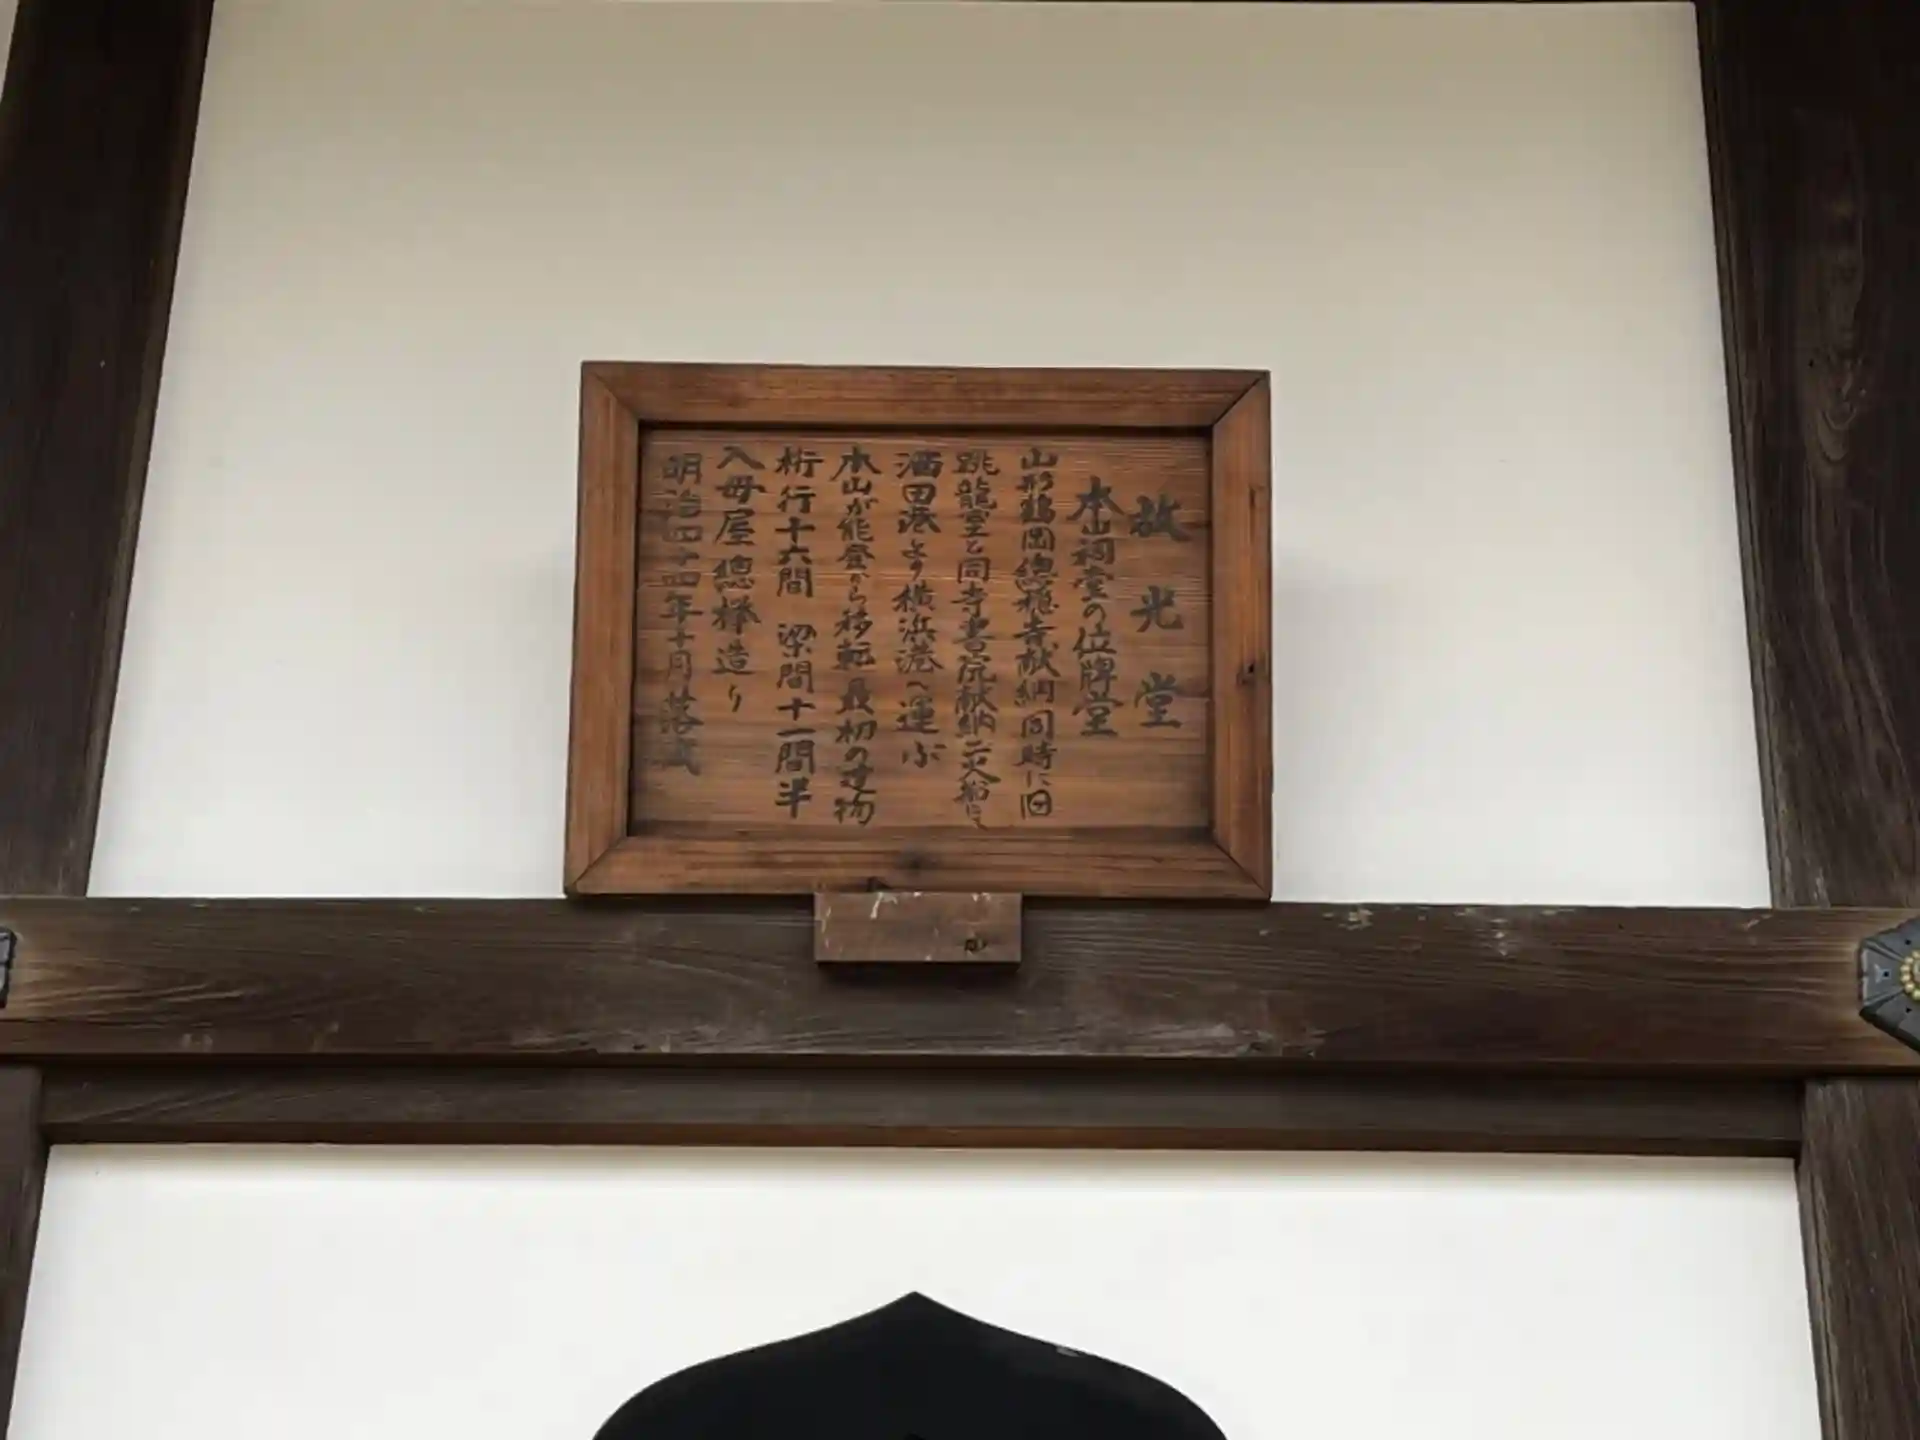 放光堂
本山祠堂の位牌堂
山形鶴岡總穏寺献納同時に旧
跳龍室と同寺書院献納二火船にて
酒田港より横浜港へ運ぶ
本山が能登から移転最初の建物
桁行十六間 梁間十一間半
入母屋總欅造り
明治四十四年十月落成